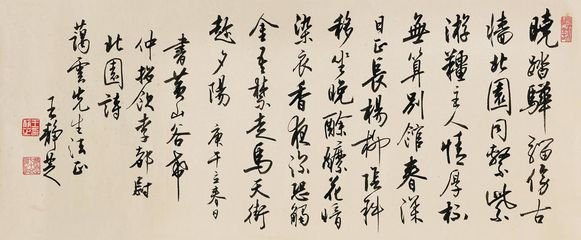 曉踏驊騮傍古
墻北園同繫紫
游韁主人情厚杯
無算別館春深
日正長楊柳陰斜
移坐晚酴醾花暗
染衣香夜深恐觸
金吾禁走馬天街
趁夕陽 庚午立春日
書黃山谷希
仲招飲李都尉
北園詩
藹雲先生法正
王靜芝